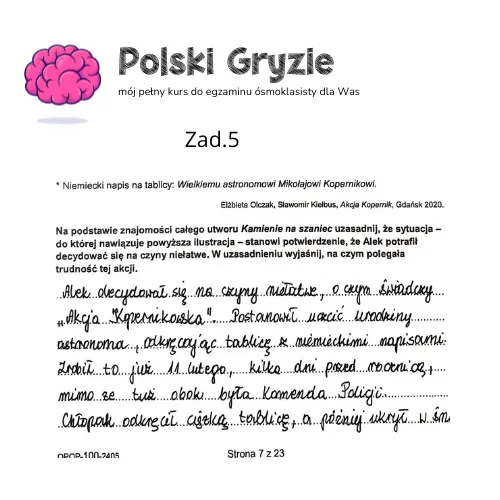 Polski Gryzie
mój pełny kurs do egzaminu ósmoklasisty dla Was
Zad.5
* Niemiecki napis na tablicy: Wielkiemu astronomowi Mikołajowi Kopernikowi.
Elżbieta Olczak, Sławomir Kiełbus, Akcja Kopernik, Gdańsk 2020.
Na podstawie znajomości całego utworu Kamienie na szaniec uzasadnij, że sytuacja –
do której nawiązuje powyższa ilustracja – stanowi potwierdzenie, że Alek potrafił
decydować się na czyny niełatwe. W uzasadnieniu wyjaśnij, na czym polegała
trudność tej akcji.
Alek decydował się na czyny niełatwe, o czym świadczy
„Akcja "Kopernikowska". Postanowił uczcić urodziny
astronoma, odkręcając tablicę z niemieckimi napisami.
Zrobił to już 11 lutego, kilka dni przed rocznicą,
mimo że tuż obok była Komenda Policji.
Chłopak odkręcił ciężką tablicę, a później ukrył w
OPOP-100-2405
Strona 7 z 23